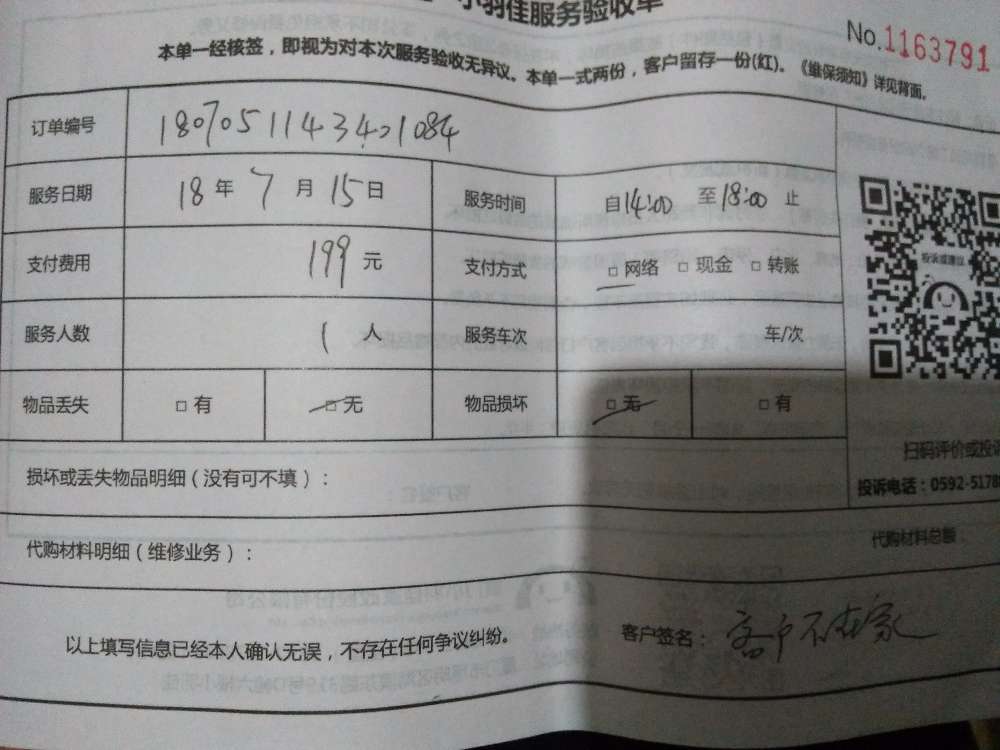 小羽佳服务验收单
No.1163791
本单一经核签，即视为对本次服务验收无异议。本单一式两份，客户留存一份(红)。《维保须知》详见背面。
订单编号
服务日期 18 年 7 月 15 日 服务时间 自14:00 至18:00 止
支付费用 199 元 支付方式 □ 网络 □ 现金 □ 转账
服务人数 1 人 服务车次 车/次
物品丢失 □ 有 □ 无 物品损坏 □ 无 □ 有
投诉或建议
扫码评价或投诉
损坏或丢失物品明细（没有可不填）：
投诉电话：0592-5178
代购材料明细（维修业务）： 代购材料总额：
以上填写信息已经本人确认无误，不存在任何争议纠纷。 客户签名：客户不在家